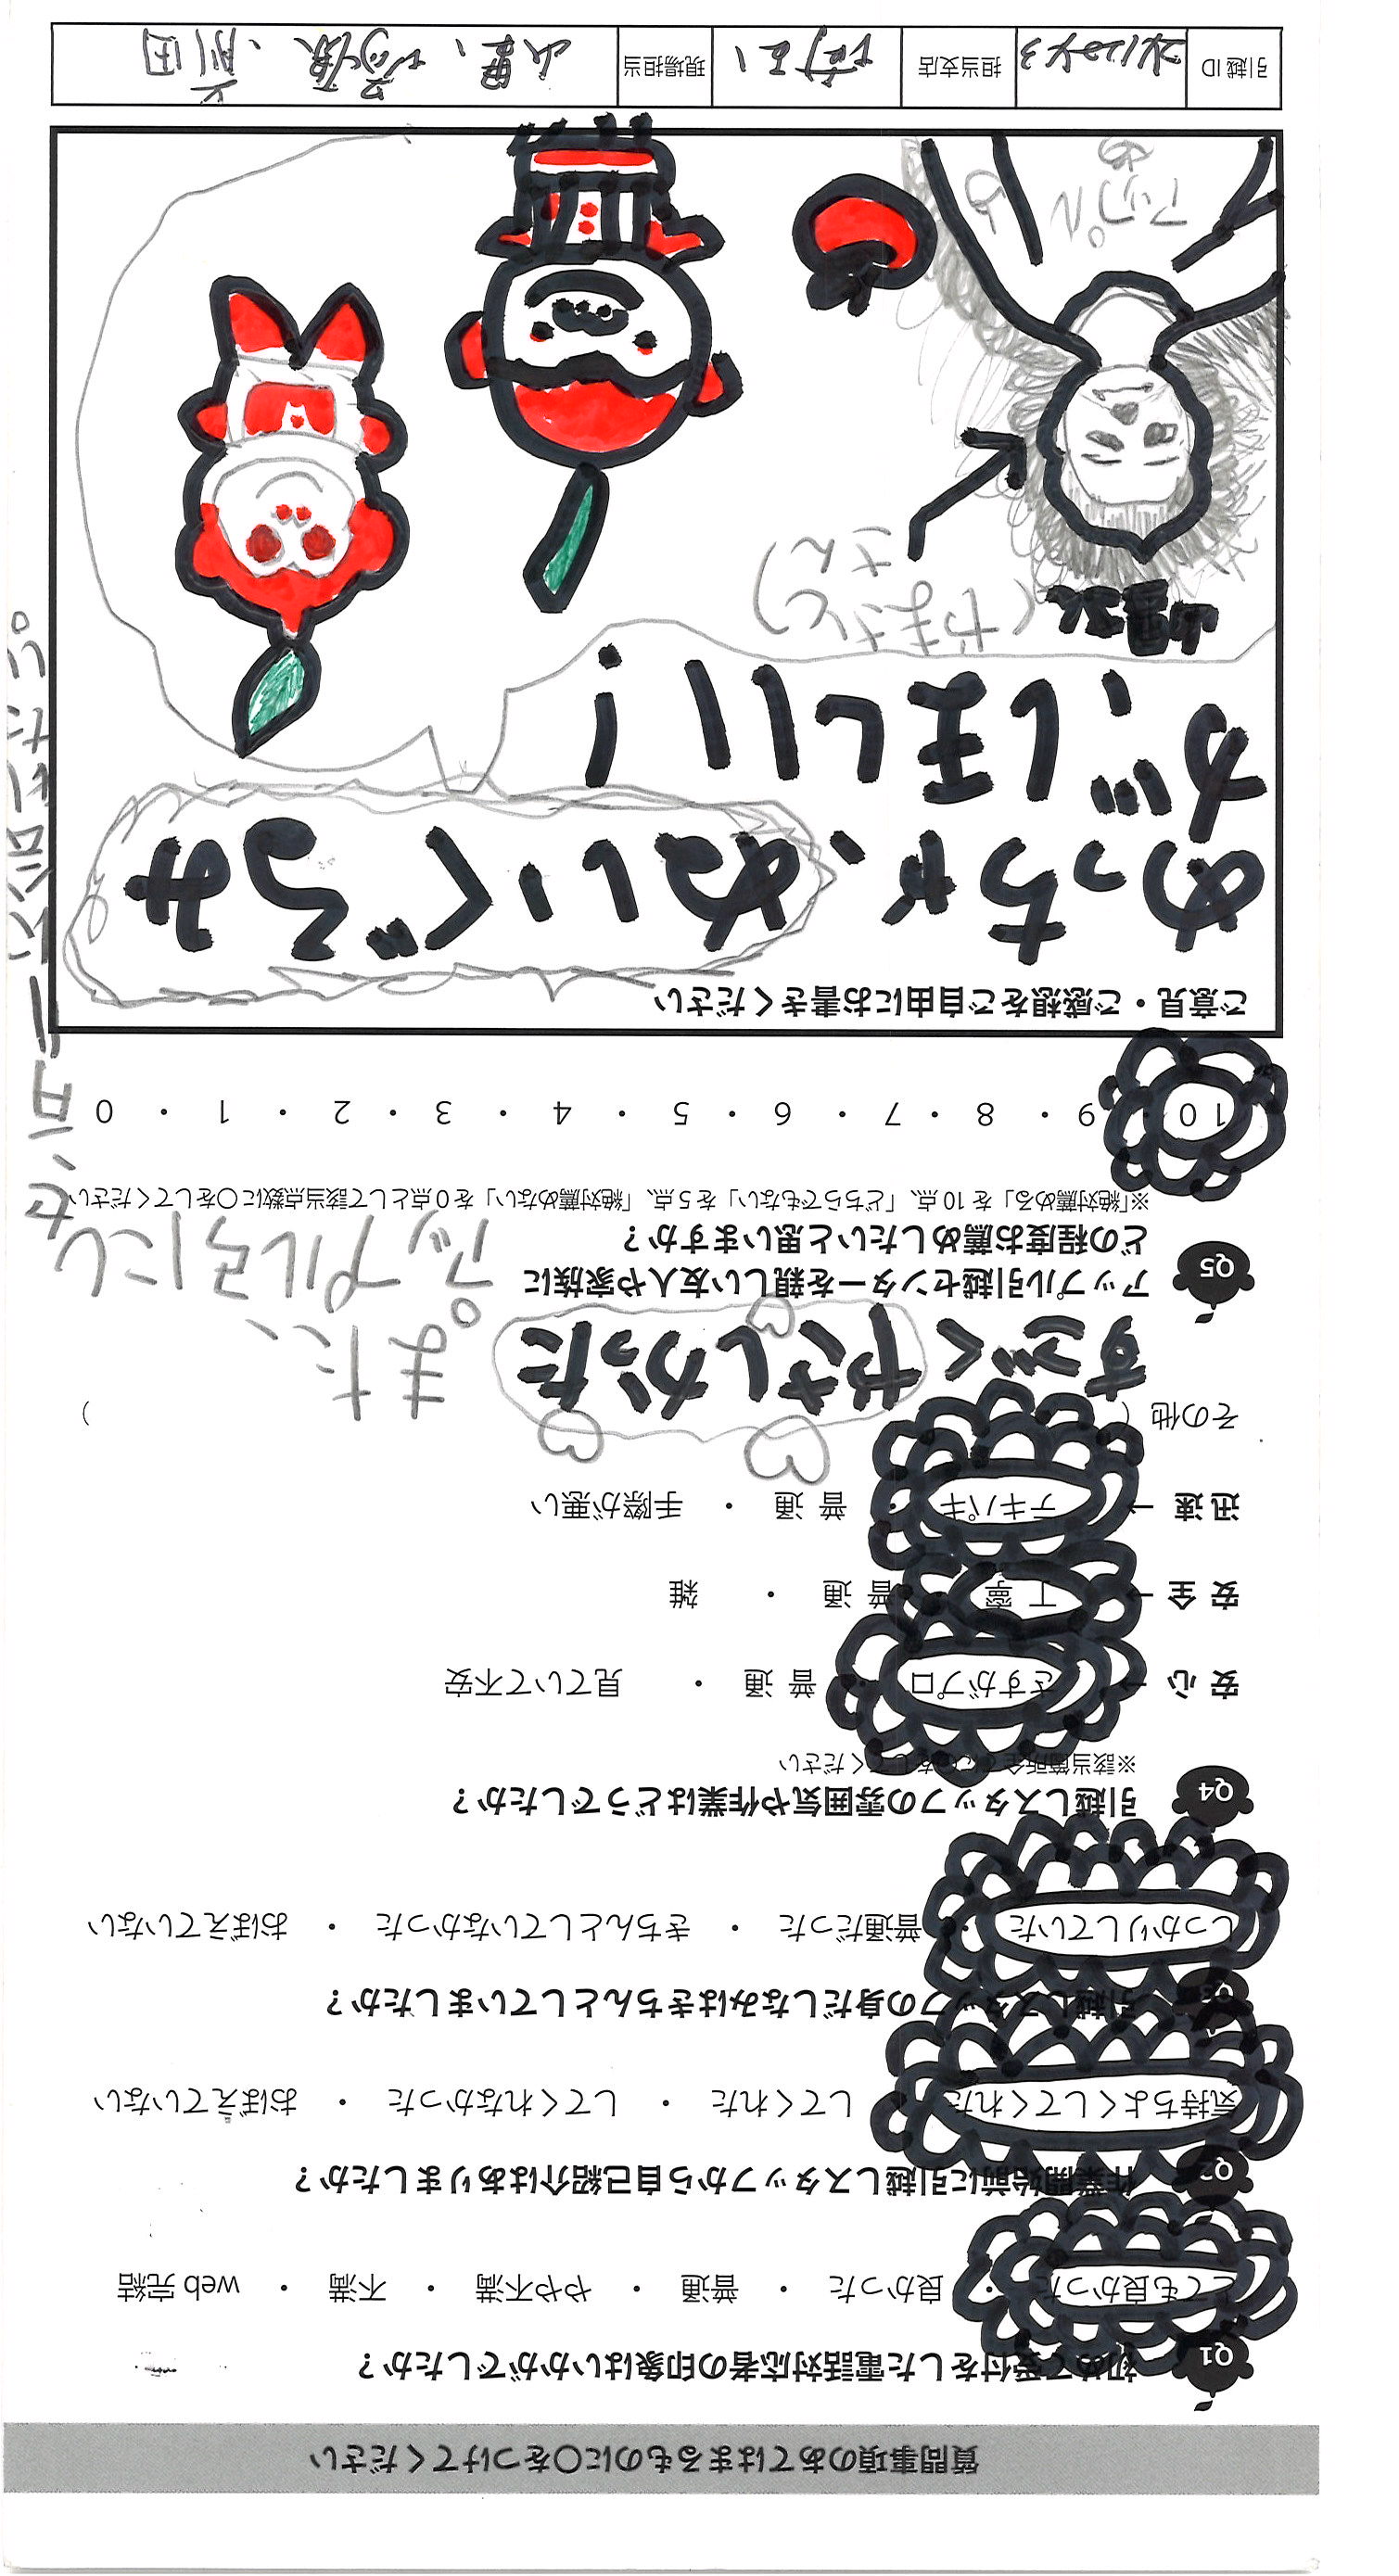 質問事項のあてはまるものに○をつけてください
Q1 初めて受付をした電話対応者の印象はいかがでしたか？
とても良かった ・ 良かった ・ 普通 ・ やや不満 ・ 不満 ・ web 完結
Q2 作業開始前に引越しスタッフから自己紹介はありましたか？
気持ちよくしてくれた ・ してくれた ・ してくれなかった ・ おぼえていない
Q3 引越しスタッフの身だしなみはきちんとしていましたか？
しっかりしていた ・ 普通だった ・ きちんとしていなかった ・ おぼえていない
Q4 引越しスタッフの雰囲気や作業はどうでしたか？
※該当箇所全てに○をしてください
安 心 → さすがプロ ・ 普 通 ・ 見ていて不安
安 全 → 丁 寧 ・ 普 通 ・ 雑
迅 速 → テキパキ ・ 普 通 ・ 手際が悪い
その他（ ）
すごくやさしかった
また、
アップル引越センターを親しい友人や家族に
Q5 どの程度お薦めしたいと思いますか？
アップル子にし
※「絶対薦める」を 10 点、「どちらでもない」を 5 点、「絶対薦めない」を 0 点として該当点数に○をしてください
10 ・ 9 ・ 8 ・ 7 ・ 6 ・ 5 ・ 4 ・ 3 ・ 2 ・ 1 ・ 0
ご意見・ご感想をご自由にお書きください
めっちゃ、ぬいぐるみ
が、ほしい！
山里さん
(やまさと)
さん
アップル
引越 ID
担当支店
現場担当
山里、
前田